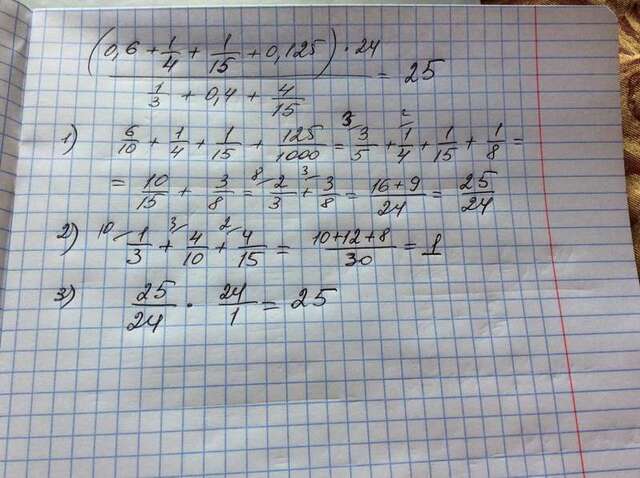 (0,6 + 1/4 + 1/15 + 0,125) · 24 / 1/3 + 0,4 + 4/15 = 25
1) 6/10 + 1/4 + 1/15 + 125/1000 = ³ 3/5 + ² 1/4 + 1/15 + 1/8 =
= 10/15 + 3/8 = ⁸ 2/3 + ³ 3/8 = 16+9/24 = 25/24
2) ¹⁰ 1/3 + ³ 4/10 + ² 4/15 = 10+12+8/30 = 1
3) 25/24 · 24/1 = 25